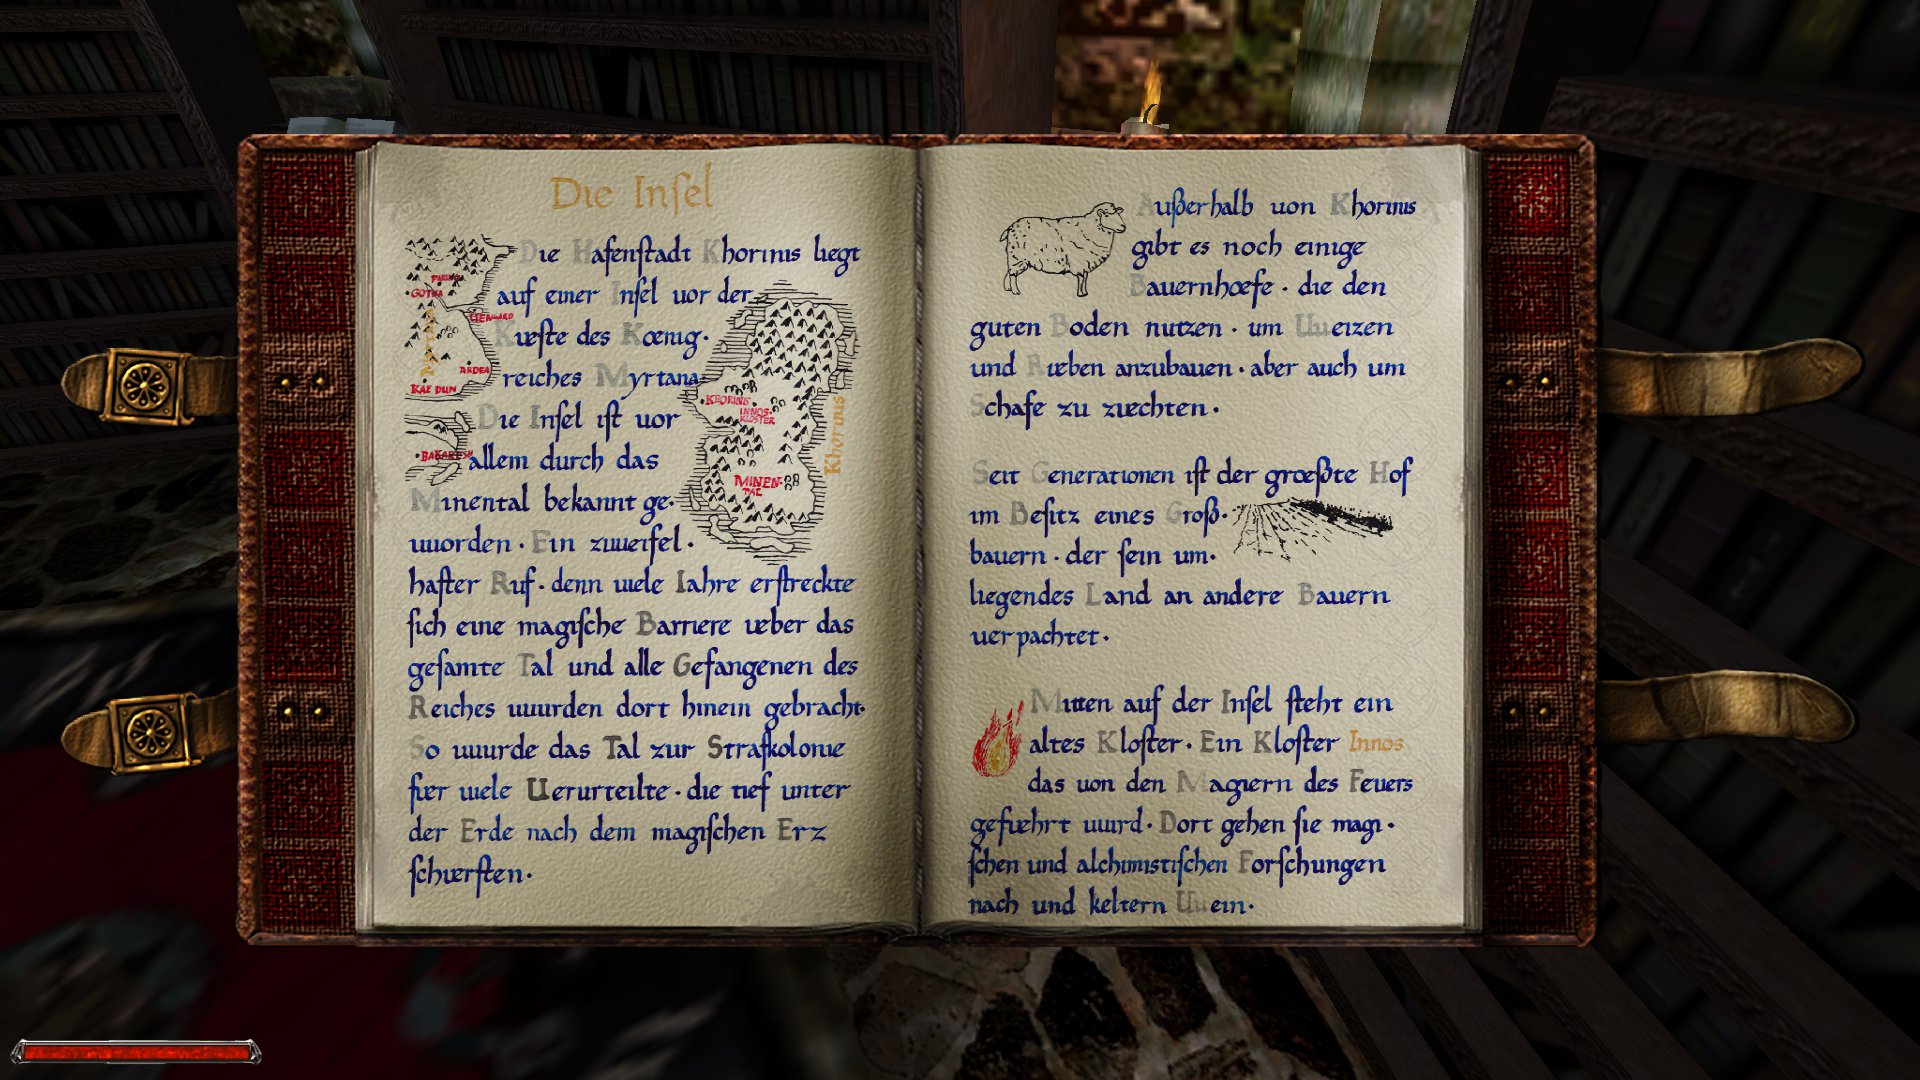 Die Inſel
Die Hafenſtadt Khorinis liegt
auf einer Inſel vor der
Kueſte des Kœnig·
reiches Myrtana·
Die Inſel iſt vor
allem durch das
Minental bekannt ge·
worden · Ein zweifel·
hafter Ruf · denn viele Iahre erſtreckte
ſich eine magiſche Barriere ueber das
geſamte Tal und alle Gefangenen des
Reiches wurden dort hinein gebracht·
So wurde das Tal zur Strafkolonie
fuer viele Verurteilte · die tief unter
der Erde nach dem magiſchen Erz
ſchuerften ·
GOTHA
VENGARD
Myrtana
ARDEA
KAP DUN
BAKARESH
KHORINIS
INNOS-
KLOSTER
Khorinis
MINEN-
TAL
Außerhalb von Khorinis
gibt es noch einige
Bauernhœfe · die den
guten Boden nutzen · um Weizen
und Rueben anzubauen · aber auch um
Schafe zu zuechten ·
Seit Generationen iſt der grœßte Hof
im Beſitz eines Groß·
bauern · der ſein um·
liegendes Land an andere Bauern
verpachtet ·
Mitten auf der Inſel ſteht ein
altes Kloſter · Ein Kloſter Innos
das von den Magiern des Feuers
gefuehrt wird · Dort gehen ſie magi·
ſchen und alchimistiſchen Forſchungen
nach und keltern Wein ·